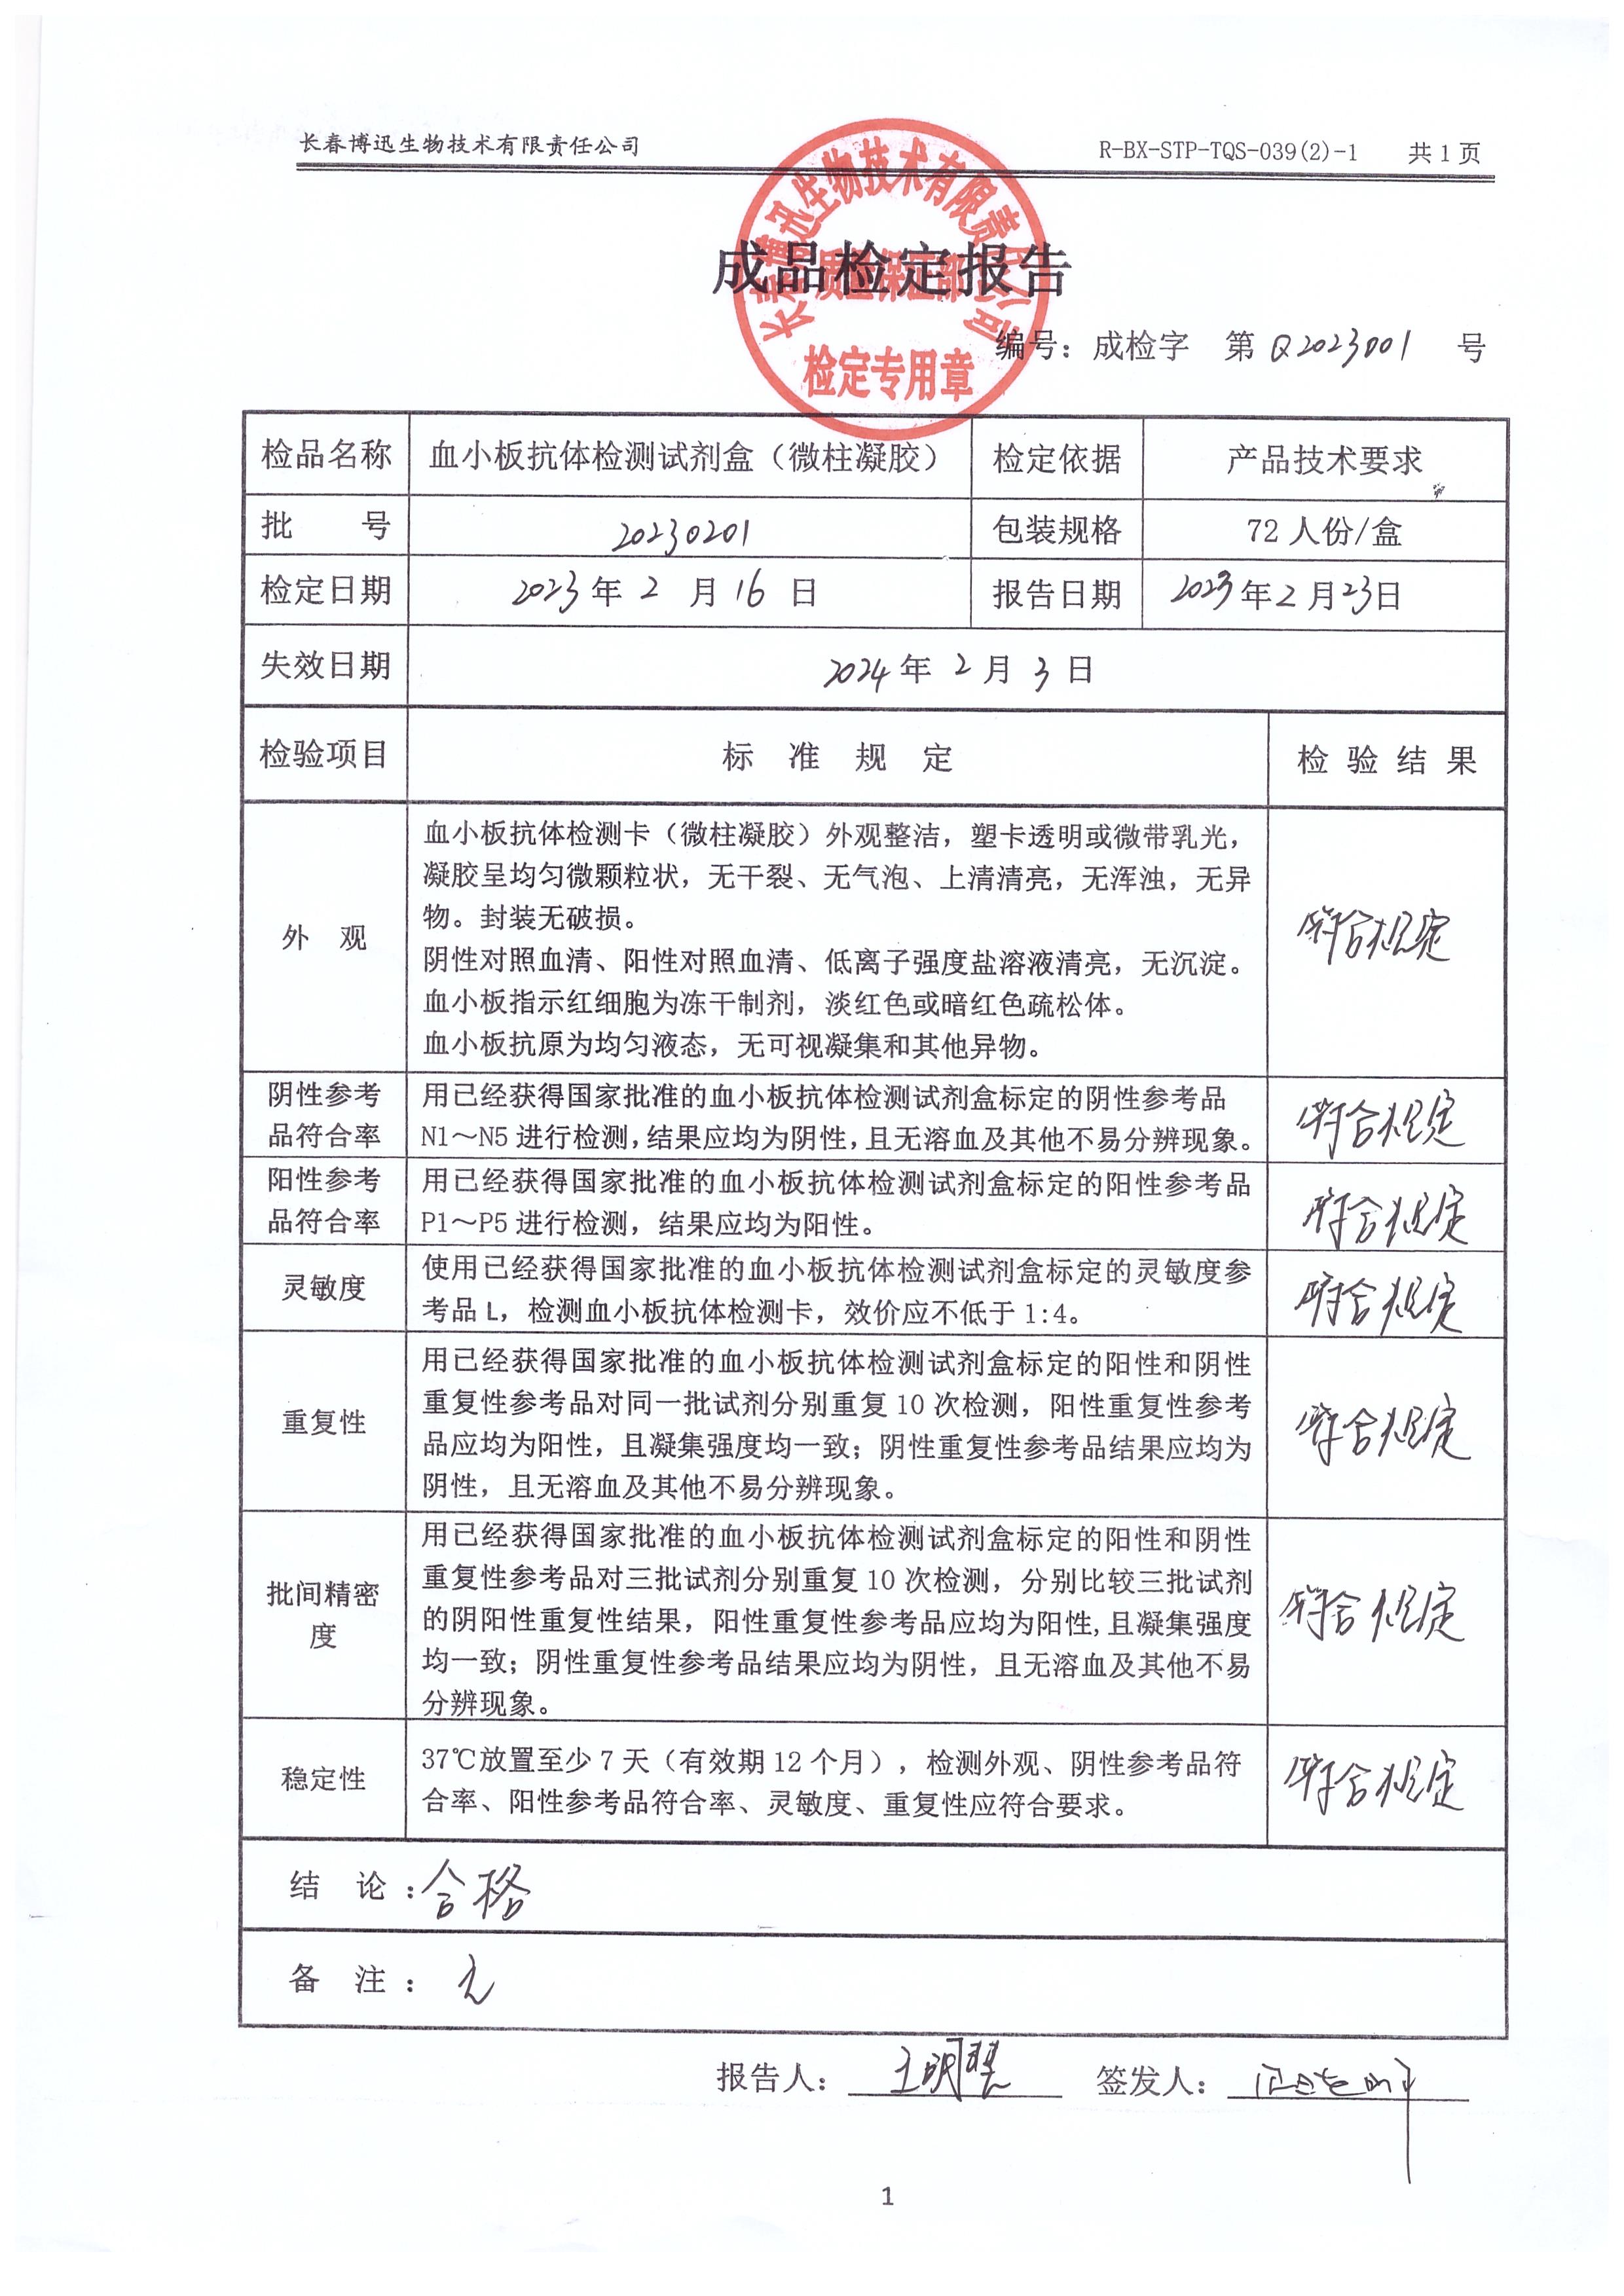 长春博迅生物技术有限责任公司 R-BX-STP-TQS-039(2)-1 共1页
长春博迅生物技术有限责任公司
质量保证部
检定专用章
成品检定报告
编号：成检字 第Q2023001 号
检品名称 血小板抗体检测试剂盒（微柱凝胶） 检定依据 产品技术要求
批 号 20230201 包装规格 72人份/盒
检定日期 2023年 2 月 16 日 报告日期 2023年2月23日
失效日期 2024年 2 月 3 日
检验项目 标 准 规 定 检 验 结 果
外 观
血小板抗体检测卡（微柱凝胶）外观整洁，塑卡透明或微带乳光，
凝胶呈均匀微颗粒状，无干裂、无气泡、上清清亮，无浑浊，无异
物。封装无破损。
阴性对照血清、阳性对照血清、低离子强度盐溶液清亮，无沉淀。
血小板指示红细胞为冻干制剂，淡红色或暗红色疏松体。
血小板抗原为均匀液态，无可视凝集和其他异物。
符合规定
阴性参考
品符合率
用已经获得国家批准的血小板抗体检测试剂盒标定的阴性参考品
N1～N5进行检测,结果应均为阴性,且无溶血及其他不易分辨现象。
符合规定
阳性参考
品符合率
用已经获得国家批准的血小板抗体检测试剂盒标定的阳性参考品
P1～P5进行检测，结果应均为阳性。
符合规定
灵敏度
使用已经获得国家批准的血小板抗体检测试剂盒标定的灵敏度参
考品L，检测血小板抗体检测卡，效价应不低于1:4。
符合规定
重复性
用已经获得国家批准的血小板抗体检测试剂盒标定的阳性和阴性
重复性参考品对同一批试剂分别重复10次检测，阳性重复性参考
品应均为阳性，且凝集强度均一致；阴性重复性参考品结果应均为
阴性，且无溶血及其他不易分辨现象。
符合规定
批间精密
度
用已经获得国家批准的血小板抗体检测试剂盒标定的阳性和阴性
重复性参考品对三批试剂分别重复10次检测，分别比较三批试剂
的阴阳性重复性结果，阳性重复性参考品应均为阳性,且凝集强度
均一致；阴性重复性参考品结果应均为阴性，且无溶血及其他不易
分辨现象。
符合规定
稳定性
37℃放置至少7天（有效期12个月），检测外观、阴性参考品符
合率、阳性参考品符合率、灵敏度、重复性应符合要求。
符合规定
结 论：合格
备 注：无
报告人： 签发人：
1